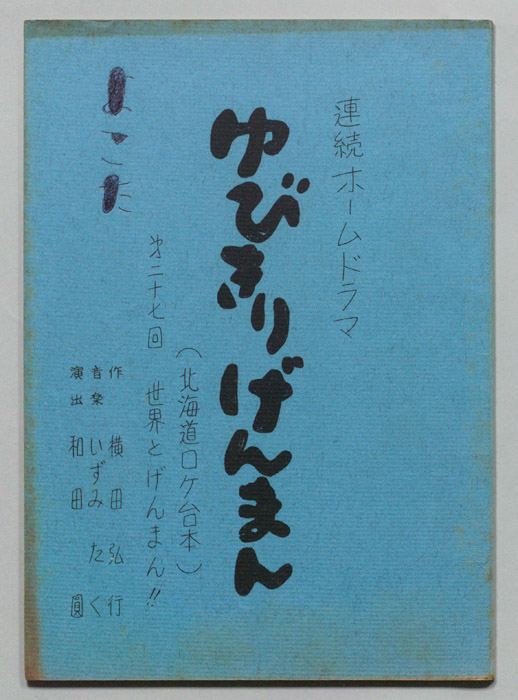 連続ホームドラマ
ゆびきりげんまん
(北海道ロケ台本)
第二十七回 世界とげんまん!!
作 横田弘行
音楽 いずみたく
演出 和田 圓